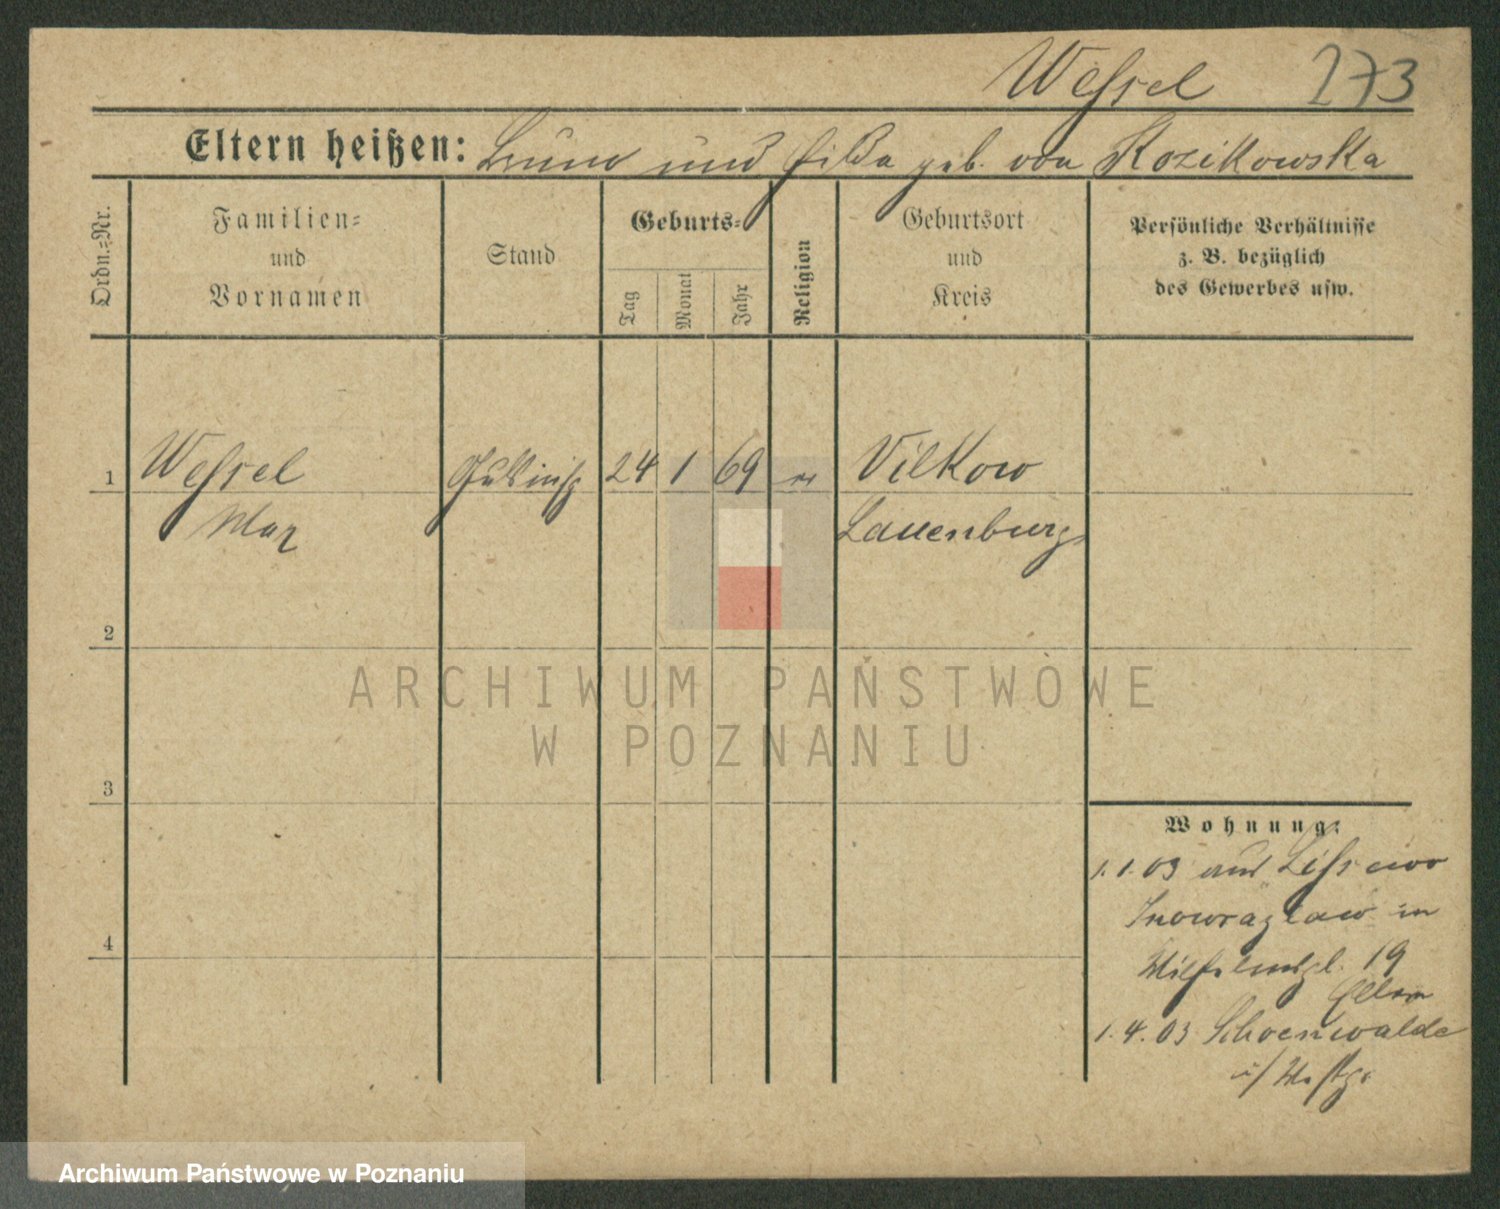 Wessel 273
Eltern heißen: Bruno und Hilda geb. von Kozikowska
Ordn.=Nr.
Familien=
und
Vornamen
Stand
Geburts=
Tag
Monat
Jahr
Religion
Geburtsort
und
Kreis
Persönliche Verhältnisse
z. B. bezüglich
des Gewerbes usw.
1 Wessel 24 1 69 Vilkow
Max Lauenburg
2
3
4
Wohnung:
1.1.03 aus Lissewo
Inowrazlaw in
19
Eltern
1.4.03 Schoenwalde
i/ Westpr.
ARCHIWUM PAŃSTWOWE
W POZNANIU
Archiwum Państwowe w Poznaniu